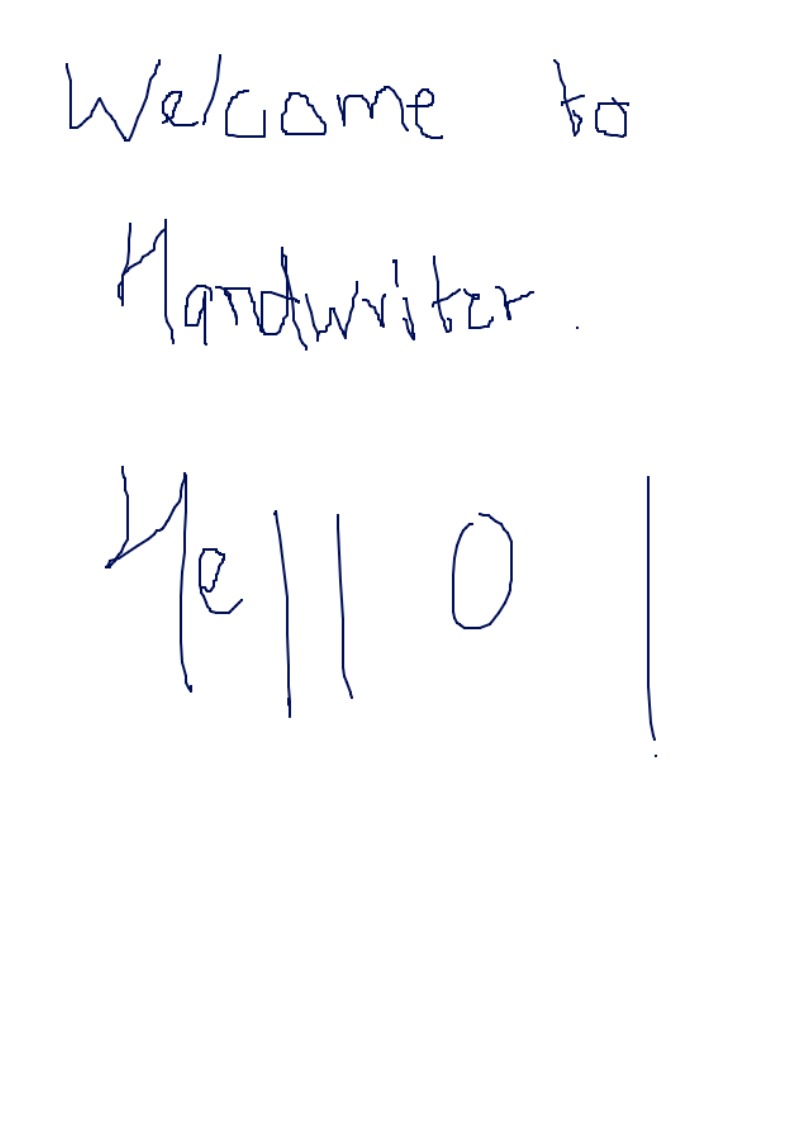 Welcome to
Handwriter.
Hello!